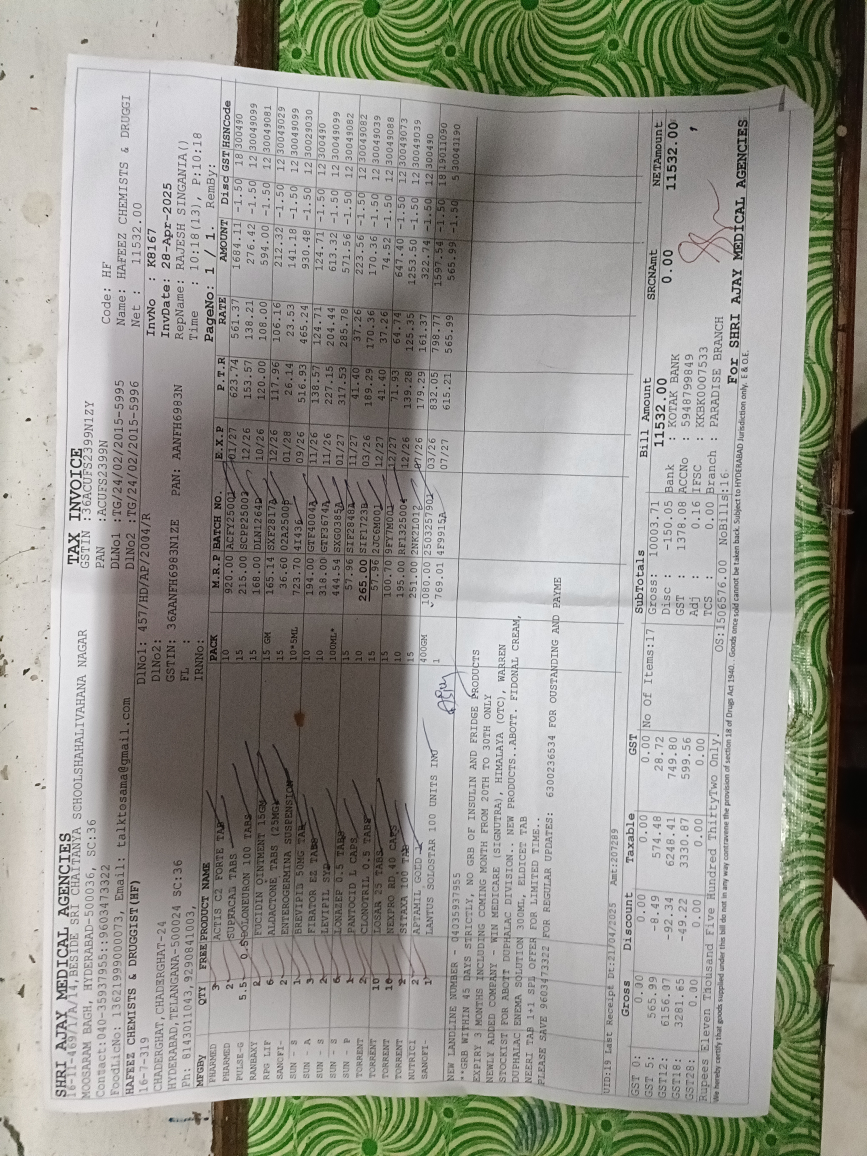 SHRI AJAY MEDICAL AGENCIES
16-11-469/1/A/14,BESIDE SRI CHAITANYA SCHOOLSHAHALIVAHANA NAGAR
MOOSARAM BAGH, HYDERABAD-500036, SC:36
Contact:040-35937955::9603473322
FoodLicNo: 13621999000073, Email: talktosama@gmail.com
TAX INVOICE
GSTIN :36ACUFS2399N1ZY
PAN :ACUFS2399N
DLNo1 :TG/24/02/2015-5995
DlNo2 :TG/24/02/2015-5996
Code: HF
Name: HAFEEZ CHEMISTS & DRUGGI
Net : 11532.00
HAFEEZ CHEMISTS & DRUGGIST(HF)
16-7-319
CHADERGHAT, CHADERGHAT-24
HYDERABAD,TELANGANA-500024 SC:36
Ph: 8143011043,9290841003,
DlNo1: 457/HD/AP/2004/R
DlNo2:
GSTIN: 36AANFH6983N1ZE PAN: AANFH6983N
FL :
IRNNo:
InvNo : K8167
InvDate: 28-Apr-2025
RepName: RAJESH SINGANIA()
Time : 10:18(13), P:10:18
PageNo: 1 / 1. RemBy:
MFGBy QTY FREE PRODUCT NAME PACK M.R.P BATCH NO. E.X.P P.T.R RATE AMOUNT Disc GST HSNCode
PHARMED 3 ACTIS C2 FORTE TAB 10 920.00 ACFY25001 01/27 623.74 561.37 1684.11 -1.50 18 300490
PHARMED 2 SUPRACAL TABS 15 215.00 SCPP25003 12/26 153.57 138.21 276.42 -1.50 12 30049099
PULSE-G 5.5 0.5 SOLONEURON 100 TABS 15 168.00 DLN1264D 10/26 120.00 108.00 594.00 -1.50 12 30049081
RANBAXY 2 FUCIDIN OINTMENT 15GM 15 GM 165.14 SXF2817A 12/26 117.96 106.16 212.32 -1.50 12 30049029
RPG LIF 6 ALDACTONE TABS (25MG) 15 36.60 OZA25006 01/28 26.14 23.53 141.18 -1.50 12 30049099
SANOFI- 2 ENTEROGERMINA SUSPENSION 10*5ML 723.70 4I436 09/26 516.93 465.24 930.48 -1.50 12 30029030
SUN - S 1 BREVIPIL 50MG TAB 10 194.00 GTF4004A 11/26 138.57 124.71 124.71 -1.50 12 300490
SUN - A 3 FIRATOR EZ TABS 10 318.00 GTF3674A 11/26 227.15 204.44 613.32 -1.50 12 30049099
SUN - S 2 LEVIFIL SYP 100ML* 444.54 SXG0385A 01/27 317.53 285.78 571.56 -1.50 12 30049082
SUN - S 6 LONAZEP 0.5 TABS 15 57.96 SIF2848A 11/27 41.40 37.26 223.56 -1.50 12 30049082
SUN - P 1 PANTOCID L CAPS 10 265.00 SIF1723B 03/26 189.29 170.36 170.36 -1.50 12 30049039
TORRENT 2 CLONOTRIL 0.5 TABS 15 57.96 2JC6M001 12/27 41.40 37.26 74.52 -1.50 12 30049088
TORRENT 10 LOSAR 25 TABS 15 100.70 9FY7M001 12/27 71.93 64.74 647.40 -1.50 12 30049073
TORRENT 10 NEXPRO RD 40 CAPS 10 195.00 RF1325004 12/26 139.28 125.35 1253.50 -1.50 12 30049039
TORRENT 2 15 251.00 2NK2L012 07/26 179.29 161.37 322.74 -1.50 12 300490
NUTRICI 2 APTAMIL GOLD 400GM 1080.00 250325790 03/26 832.05 798.77 1597.54 -1.50 18 19011090
SANOFI- 1 LANTUS SOLOSTAR 100 UNITS INJ 1 769.01 4F9915A 07/27 615.21 565.99 565.99 -1.50 5 30043190
NEW LANDLINE NUMBER - 04035937955
**GRB WITHIN 45 DAYS STRICTLY, NO GRB OF INSULIN AND FRIDGE PRODUCTS
EXPIRY 3 MONTHS INCLUDING COMING MONTH FROM 20TH TO 30TH ONLY
NEWLY ADDED COMPANY - WIN MEDICARE (SIGNUTRA), HIMALAYA (OTC), WARREN
STOCKIST FOR ABOTT DUPHALAC DIVISION.. NEW PRODUCTS..ABOTT. FIDONAL CREAM,
DUPHALAC ENEMA SOLUTION 300ML, ELDICET TAB
NEERI TAB 1+1 SPL OFFER FOR LIMITED TIME..
PLEASE SAVE 9603473322 FOR REGULAR UPDATES: 6300236534 FOR OUSTANDING AND PAYME
UID:19 Last Receipt Dt:21/04/2025 Amt:207289
Gross Discount Taxable GST
GST 0: 0.00 0.00 0.00 0.00
GST 5: 565.99 -8.49 574.48 28.72
GST12: 6156.07 -92.34 6248.41 749.80
GST18: 3281.65 -49.22 3330.87 599.56
GST28: 0.00 0.00 0.00 0.00
No Of Items:17
SubTotals
Gross: 10003.71
Disc : -150.05
GST : 1378.08
Adj : 0.16
TCS : 0.00
Bill Amount
11532.00
SRCNAmt
0.00
NETAmount
11532.00
Bank : KOTAK BANK
ACCNo : 5948799849
IFSC : KKBK0007533
Branch : PARADISE BRANCH
Rupees Eleven Thousand Five Hundred ThirtyTwo Only.
OS:1506576.00 NoBills:16
For SHRI AJAY MEDICAL AGENCIES
We hereby certify that goods supplied under this bill do not in any way contravene the provision of section 18 of Drugs Act 1940. . Goods once sold cannot be taken back. Subject to HYDERABAD Jurisdiction only. E & O.E.